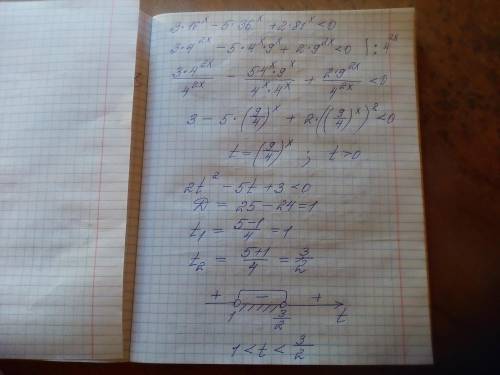 3·16^x − 5·36^x + 2·81^x < 0
3·4^{2x} − 5·4^x·9^x + 2·9^{2x} < 0 ) : 4^{2x}
\frac{3·4^{2x}}{4^{2x}} − \frac{5·4^x·9^x}{4^x·4^x} + \frac{2·9^{2x}}{4^{2x}} < 0
3 − 5·(\frac{9}{4})^x + 2·((\frac{9}{4})^x)^2 < 0
t = (\frac{9}{4})^x ; t > 0
2t^2 − 5t + 3 < 0
D = 25 − 24 = 1
t_1 = \frac{5−1}{4} = 1
t_2 = \frac{5+1}{4} = \frac{3}{2}
+ − +
1 \frac{3}{2} t
1 < t < \frac{3}{2}